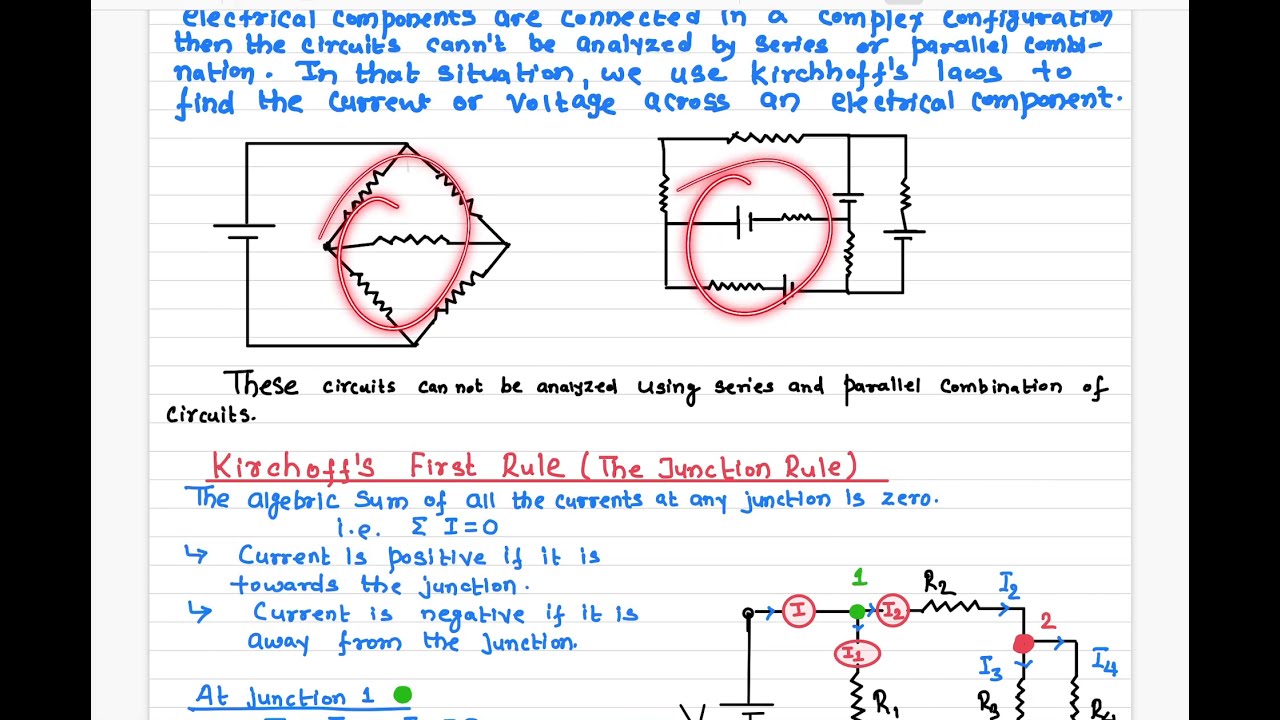 electrical components are connected in a complex configuration
then the circuits cann't be analyzed by series or parallel combi-
nation. In that situation, we use Kirchhoff's laws to
find the current or voltage across an electrical component.
These circuits can not be analyzed using series and parallel combination of
circuits.
Kirchoff's First Rule (The Junction Rule)
The algebric sum of all the currents at any junction is zero.
i.e. Σ I=0
↳ Current is positive if it is
towards the junction.
↳ Current is negative if it is
away from the junction.
At junction 1
1
R2
I2
I
I2
2
I1
I3
I4
V
R1
R3